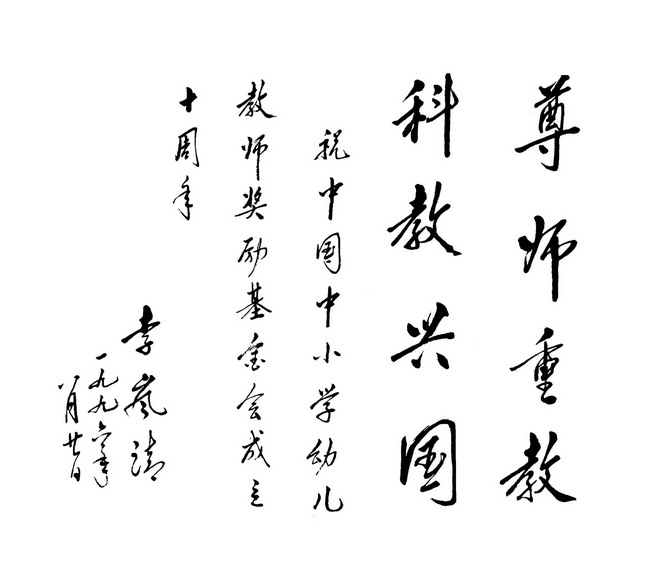 尊师重教
科教兴国
祝中国中小学幼儿
教师奖励基金会成立
十周年
李岚清
一九九六年
八月廿日